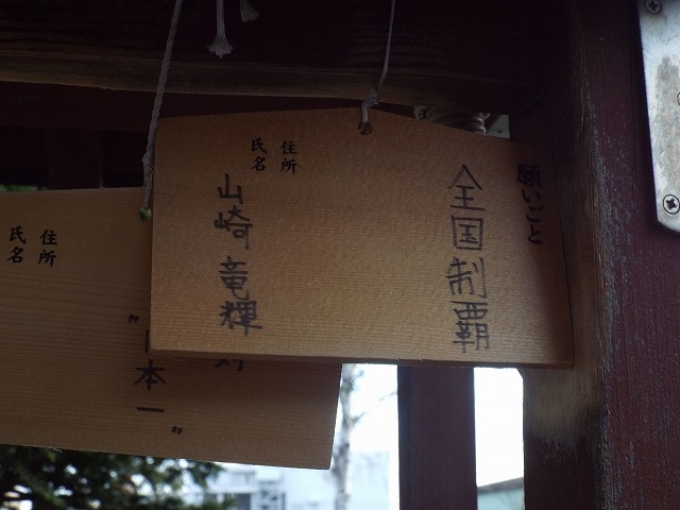 願いごと
全国制覇
住所
氏名
山崎 竜輝
住所
氏名
本一"